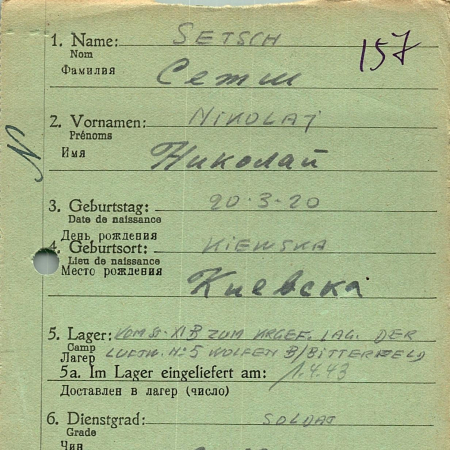 1. Name: SETSCH 157
Nom
Фамилия Сетш
2. Vornamen: NIKOLAJ
Prénoms
Имя Николай
N
3. Geburtstag: 20·3-20
Date de naissance
День рождения
4. Geburtsort: KIEWSKA
Lieu de naissance
Место рождения Киевска
5. Lager: VOM St. XI B ZUM KRGEF. LAG. DER
Camp
Лагер LUFTW. No 5 WOLFEN B/BITTERFELD
5a. Im Lager eingeliefert am: 1.4.43
Доставлен в лагер (число)
6. Dienstgrad: SOLDAT
Grade
Чин